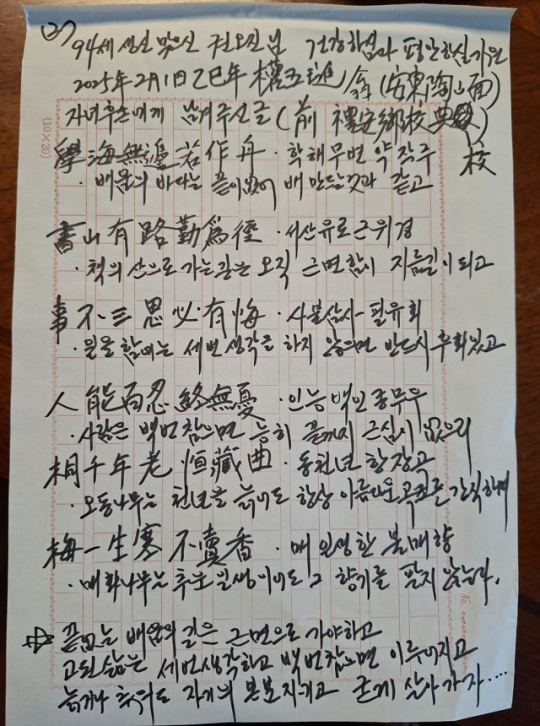 (2)
94세 생신 맞으신 권오진님 건강하심과 평안하심 기원
2025年 2月1日 乙巳年 權五進 翁 (安東陶山面)
자녀후손에게 남겨주신글 (前 禮安鄕校典校)
學海無邊若作舟 · 학해무변약작주
· 배움의 바다는 끝이없어 배 만드는것과 같고
書山有路勤爲徑 · 서산유로근위경
· 책의 산으로 가는 길은 오직 근면함이 지름길이 되고
事不三思必有悔 · 사불삼사 필유회
· 일을 함에는 세번 생각을 하지 않으면 반드시 후회있고
人能百忍終無憂 · 인능백인종무우
· 사람은 백번 참으면 능히 끝까지 근심이 없으리
桐千年老恒藏曲 · 동천년로항장곡
· 오동나무는 천년을 늙어도 항상 아름다운 곡조를 간직하며
梅一生寒不賣香 · 매일생한불매향
· 매화나무는 추운 일생이어도 그 향기를 팔지 않는다.
⇨ 끝없는 배움의 길은 근면으로 가야하고
고된 삶는 세번생각하고 백번참으면 이루어지고
늙거나 추워도 자기의 본분지키고 굳게 살아가자....
(10×20)